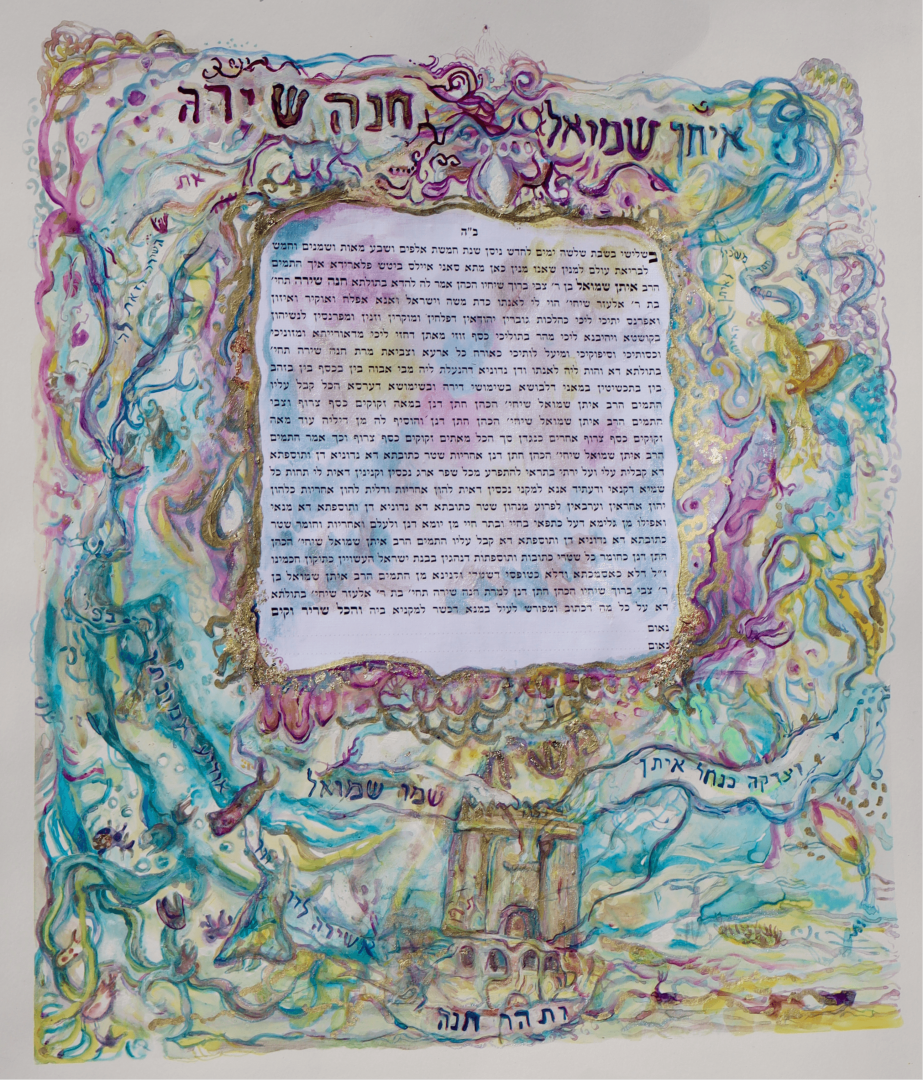 איתן שמואל
חנה שירה
את
ב"ה
בשלישי בשבת שלשה ימים לחדש ניסן שנת חמשת אלפים ושבע מאות ושמנים וחמש
לבריאת עולם למנין שאנו מנין כאן מתא סאני איילס ביטש פלארידא איך התמים
הרב איתן שמואל בן ר' צבי ברוך שיחיו הכהן אמר לה להדא בתולתא חנה שירה תחי'
בת ר' אלעזר שיחי' הוי לי לאנתו כדת משה וישראל ואנא אפלח ואוקיר ואיזון
ואפרנס יתיכי ליכי כהלכות גוברין יהודאין דפלחין ומוקרין וזנין ומפרנסין לנשיהון
בקושטא ויהיבנא ליכי מהר בתוליכי כסף זוזי מאתן דחזי ליכי מדאורייתא ומזוניכי
וכסותיכי וסיפוקיכי ומיעל לותיכי כאורח כל ארעא וצביאת מרת חנה שירה תחי'
בתולתא דא והות ליה לאנתו ודן נדוניא דהנעלת ליה מבי אבוה בין בכסף בין בזהב
בין בתכשיטין במאני דלבושא בשימושי דירה ובשימושא דערסא הכל קבל עליו
התמים הרב איתן שמואל שיחי' הכהן חתן דנן במאה זקוקים כסף צרוף וצבי
התמים הרב איתן שמואל שיחי' הכהן חתן דנן והוסיף לה מן דיליה עוד מאה
זקוקים כסף צרוף אחרים כנגדן סך הכל מאתים זקוקים כסף צרוף וכך אמר התמים
הרב איתן שמואל שיחי' הכהן חתן דנן אחריות שטר כתובתא דא נדוניא דן ותוספתא
דא קבלית עלי ועל ירתי בתראי להתפרע מכל שפר ארג נכסין וקנינין דאית לי תחות כל
שמיא דקנאי ודעתיד אנא למקני נכסין דאית להון אחריות ודלית להון אחריות כלהון
יהון אחראין וערבאין לפרוע מנהון שטר כתובתא דא נדוניא דן ותוספתא דא מנאי
ואפילו מן גלימא דעל כתפאי בחיי ובתר חיי מן יומא דנן ולעלם ואחריות וחומר שטר
כתובתא דא נדוניא דן ותוספתא דא קבל עליו התמים הרב איתן שמואל שיחי' הכהן
חתן דנן כחומר כל שטרי כתובות ותוספתות דנהגין בבנת ישראל העשויין כתיקון חכמינו
ז"ל דלא כאסמכתא ודלא כטופסי דשטרי וקנינא מן התמים הרב איתן שמואל בן
ר' צבי ברוך שיחיו הכהן חתן דנן למרת חנה שירה תחי' בת ר' אלעזר שיחי' בתולתא
דא על כל מה דכתוב ומפורש לעיל במנא דכשר למקניא ביה והכל שריר וקים
נאום
נאום
וצדקה כנחל איתן
שמו שמואל
אודיע אמונתך
בפי
ותהר חנה